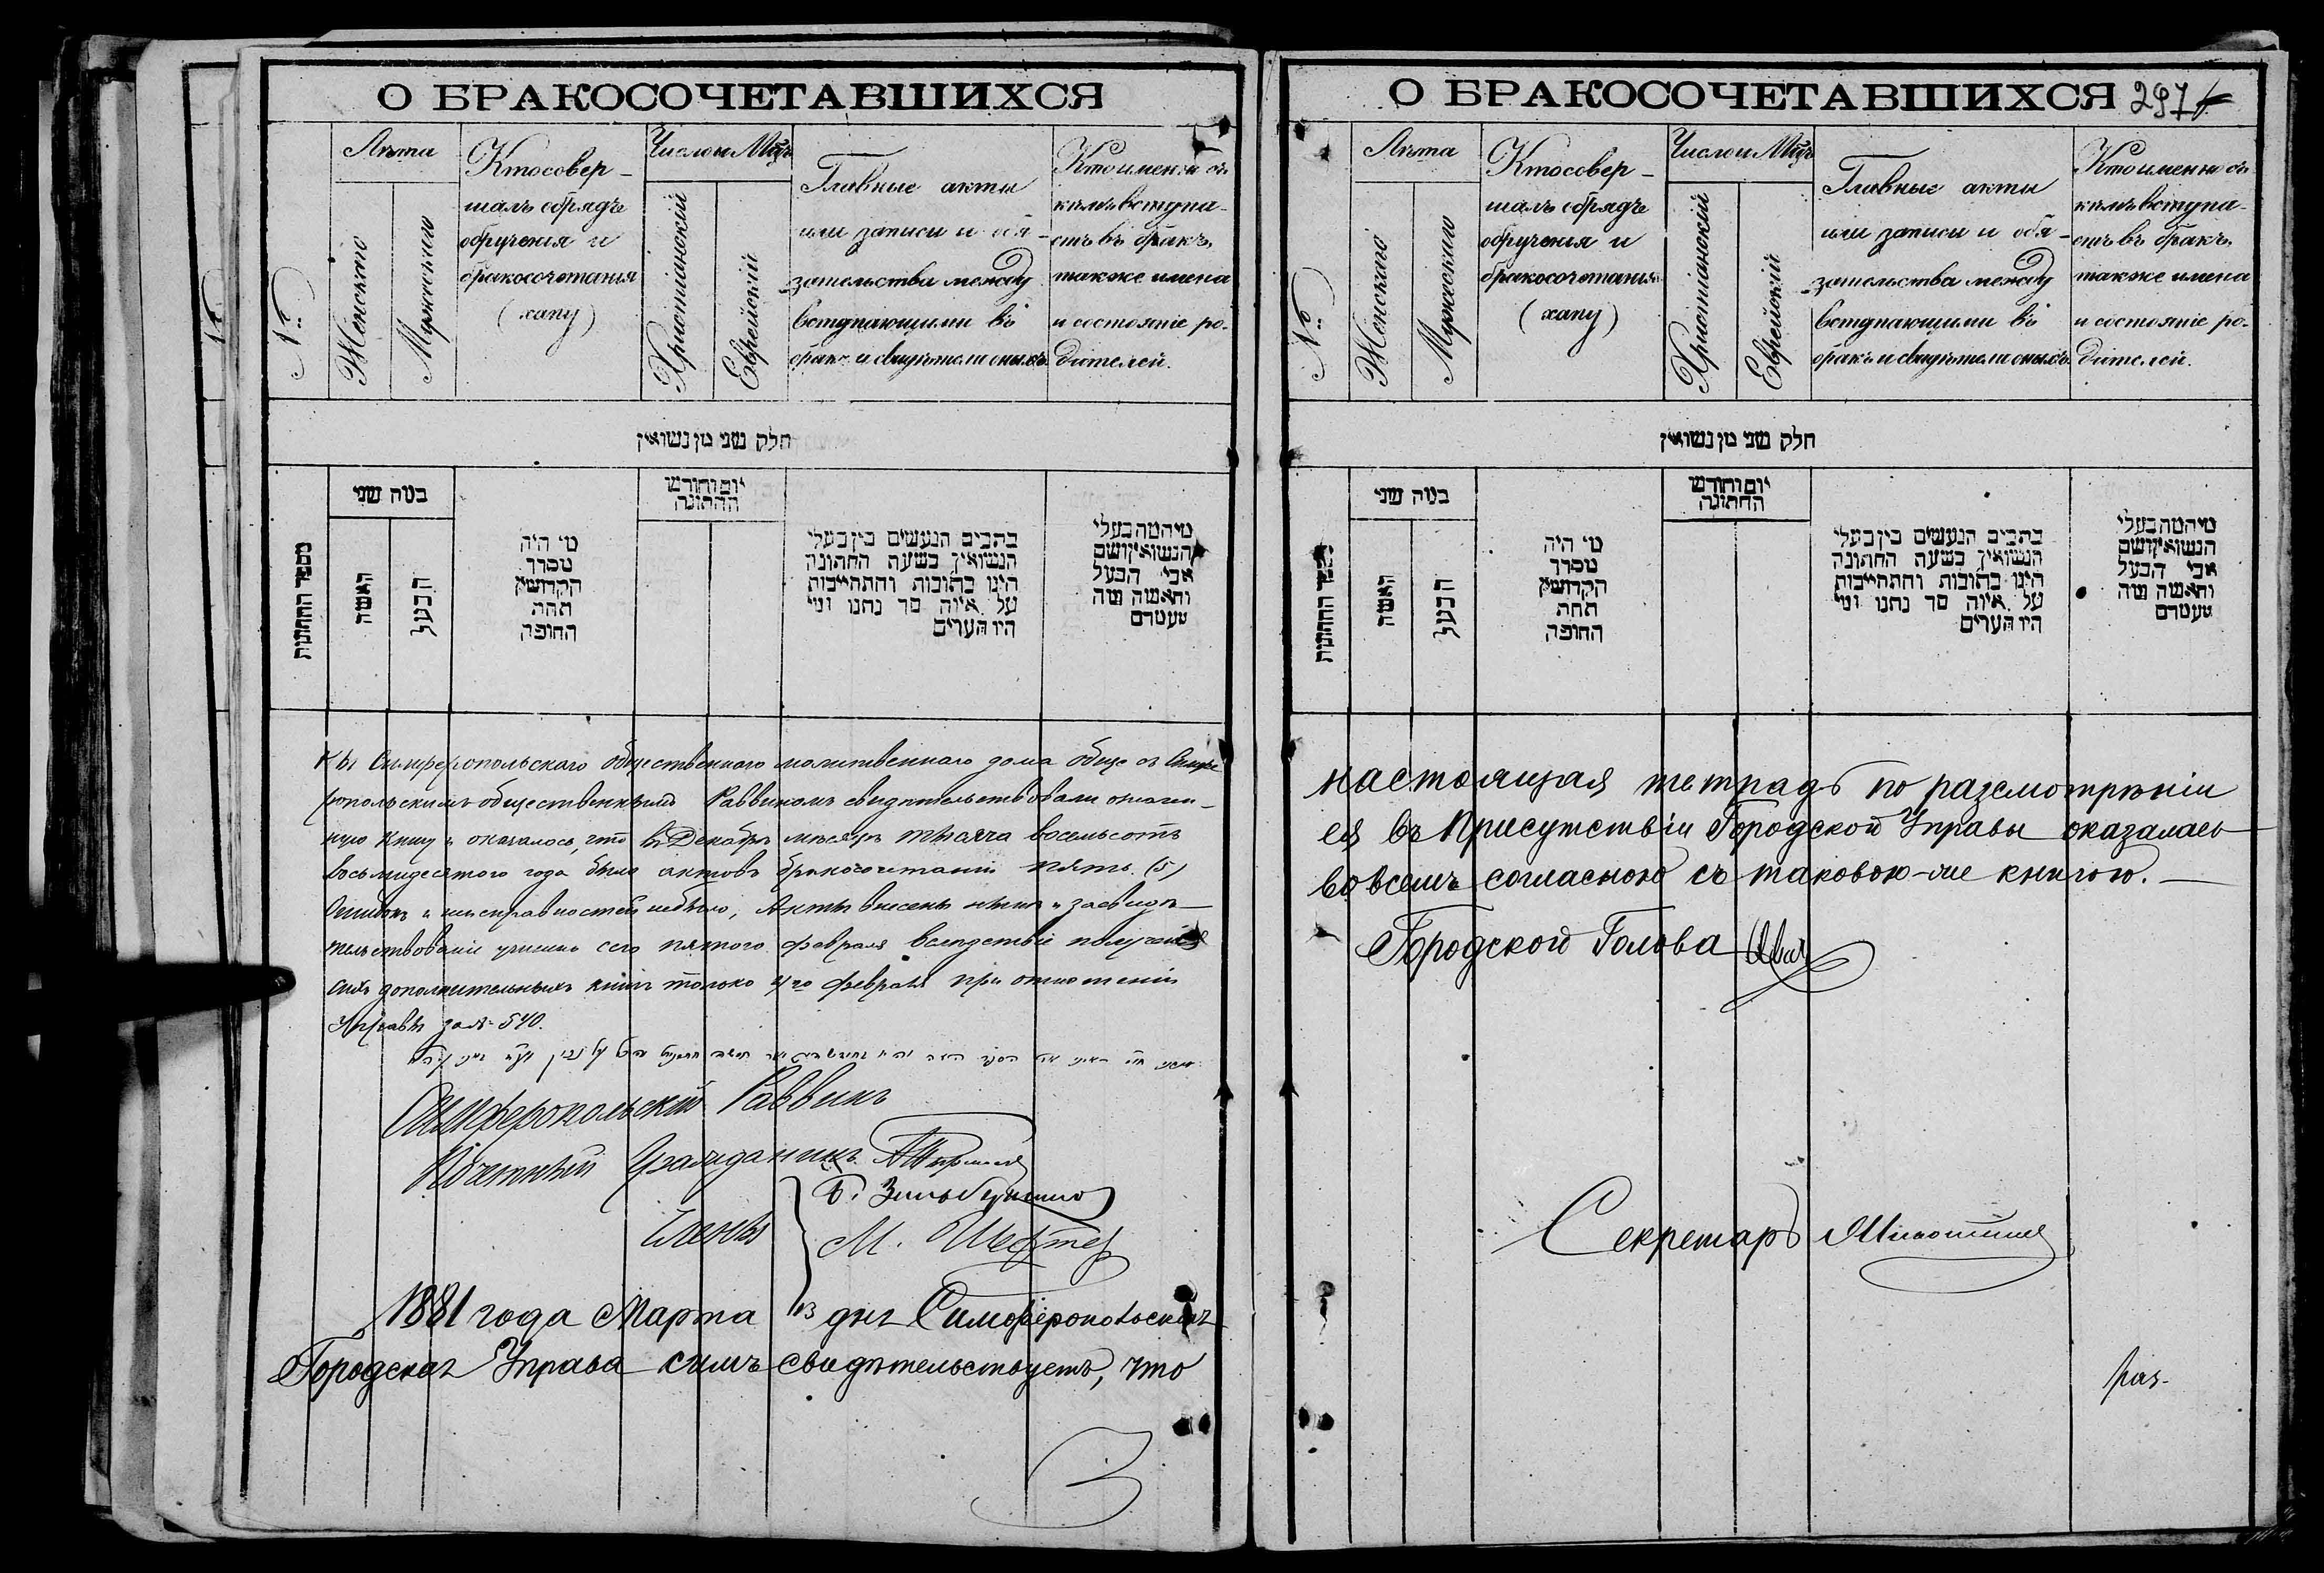 О БРАКОСОЧЕТАВШИХСЯ
№
Лѣта
Женскаго
Мужескаго
Кто совер-
шалъ обрядъ
обрученія и
бракосочетанія
(хапу)
Число и Мцъ
Христіанскій
Еврейскій
Главные акты
или записи и обя-
зательства между
вступающими въ
бракъ и свидѣтели оныхъ
Кто именно съ
кѣмъ вступа-
етъ въ бракъ,
также имена
и состояніе ро-
дителей.
חלק שני מן נשואין
מספר החתונות
כמה שני
האשה
הבעל
מי היה
מסדר
הקדושין
תחת
החופה
יום וחודש
החתונה
כתבים הנעשים בין בעלי
הנשואין בשעת החתונה
הינו כתובות והתחייבות
על איזה סך נתנו ומי
היו העדים
מי המה בעלי
הנשואין ושם
אבי הבעל
והאשה ומה
מעמדם
Симферопольскаго общественнаго молитвеннаго дома обще съ Симфе
ропольскимъ общественнымъ Раввиномъ свидѣтельствовали означен-
ную книгу и оказалось, что въ Декабрѣ мѣсяцѣ тысяча восемьсотъ
восьмидесятаго года было актовъ бракосочетанія пять (5)
Ошибокъ и неисправностей небыло, Акты внесены и засвидѣ-
тельствованіе учинено сего пятаго февраля вслѣдствіе полученія
сихъ дополнительныхъ книгъ только 4го февраля при отношеніи
Управы за № 540.
Симферопольскій Раввинъ
Почетный Гражданинъ
Члены
М. Шефтер
1881 года Марта 13 дня Симферопольская
Городская Управа симъ свидѣтельствуетъ, что
О БРАКОСОЧЕТАВШИХСЯ 297
№
Лѣта
Женскаго
Мужескаго
Кто совер-
шалъ обрядъ
обрученія и
бракосочетанія
(хапу)
Число и Мцъ
Христіанскій
Еврейскій
Главные акты
или записи и обя-
зательства между
вступающими въ
бракъ и свидѣтели оныхъ
Кто именно съ
кѣмъ вступа-
етъ въ бракъ,
также имена
и состояніе ро-
дителей.
חלק שני מן נשואין
מספר החתונות
כמה שני
האשה
הבעל
מי היה
מסדר
הקדושין
תחת
החופה
יום וחודש
החתונה
כתבים הנעשים בין בעלי
הנשואין בשעת החתונה
הינו כתובות והתחייבות
על איזה סך נתנו ומי
היו העדים
מי המה בעלי
הנשואין ושם
אבי הבעל
והאשה ומה
מעמדם
настоящая тетрадь по разсмотрѣніи
ея въ Присутствіи Городской Управы оказалась
во всемъ согласною съ таковою-же книгою.
Городской Голова
Секретарь
раз-